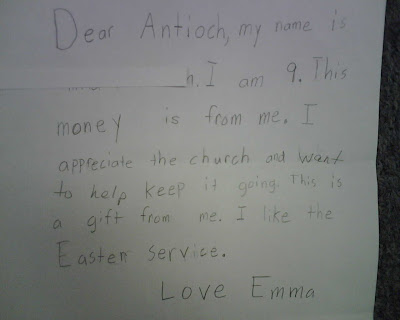 Dear Antioch, my name is
h. I am 9. This
money is from me. I
appreciate the church and want
to help keep it going. This is
a gift from me. I like the
Easter service.
Love Emma